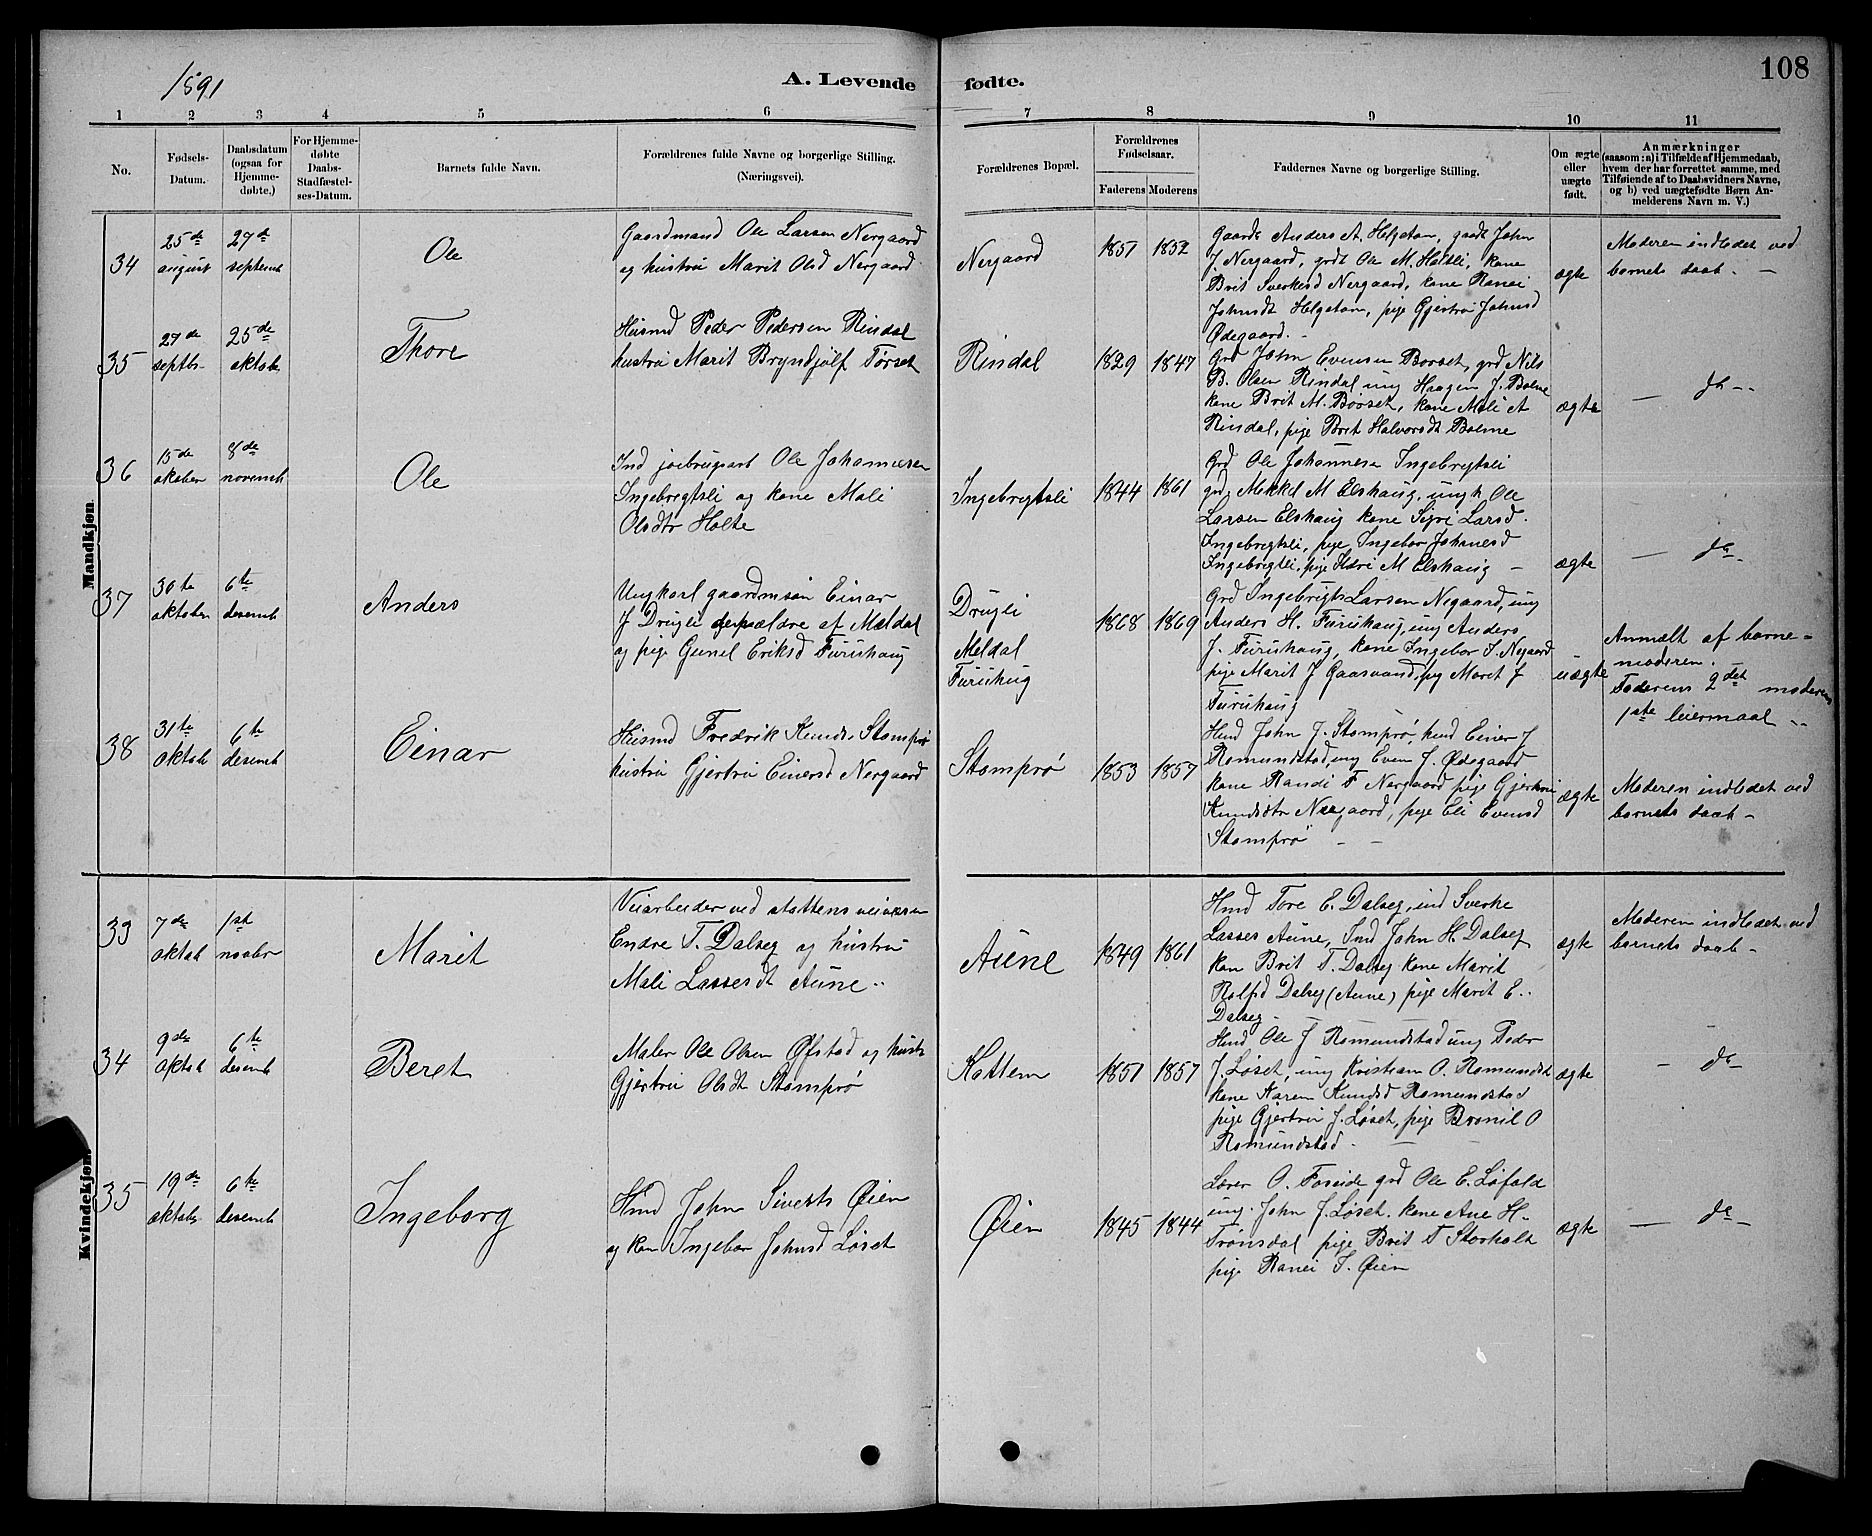 1891
A. Levende
fødte.
108
1
2
3
4
5
6
7
8
9
10
11
No.
Fødsels-
Datum.
Daabsdatum
(ogsaa for
Hjemme-
døbte.)
For Hjemme-
døbte
Daabs-
Stadfæstel-
ses-Datum.
Barnets fulde Navn.
Forældrenes fulde Navne og borgerlige Stilling.
(Næringsvei).
Forældrenes Bopæl.
Forældrenes
Fødselsaar.
Faderens
Moderens
Faddernes Navne og borgerlige Stilling.
Om ægte
eller
uægte
født.
Anmærkninger
(saasom: a) i Tilfælde af Hjemmedaab,
hvem der har forrettet samme, med
Tilføiende af to Daabsvidners Navne,
og b) ved uægtefødte Børn An-
melderens Navn m. V.)
Mandkjøn
34
25de
august
27de
septemb
Ole
Gaardmand Ole Larsen Nergaard
og hustru Marit Olsd Nergaard
Nergaard
1857
1852
Gaardm Anders A. Helgetun, gaardm John
J. Nergaard, grdm Ole M. Holtli, kone
Brit Sverkesd Nergaard, kone Ranei
Johnsdt Helgetun, pige Gjertru Johnsd
Ødegaard.
ægte
Moderen indledet ved
barnets daab -
35
27de
septbr
25de
oktobr
Thore
Husmd Peder Pedersen Rindal
hustru Marit Bryndjulf Tørset
Rindal
1829
1847
Grd John Evensen Borset, grd Nils
B. Olsen Rindal ung Haagen J. Bolme
kone Brit M. Börset, kone Mali A
Rindal, pige Brit Halvorsdt Bolme
ægte
— do -
36
15de
oktober
8de
novemb
Ole
Ind jorbrugsarb Ole Johannesen
Ingebregtsli og kone Mali
Olsdtr Holte
Ingebregtsli
1844
1861
Grd Ole Johannesen Ingebregtsli
grd Mikkel M Elshaug, ungk Ole
Larsen Elshaug kone Sigri Larsd.
Ingebregtsli, pige Ingebor Johanesd
Ingebregtsli, pige M Elshaug -
ægte
— do -
37
30te
oktober
6te
desemb
Anders
Ungkarl gaardmsøn Einar
J Drugli af Meldal
og pige Gunel Eriksd Furuhaug
Drugli
Meldal
Furuhug
1868
1869
Grd Ingebrigt Larsen Negaard, ung
Anders H. Furuhaug, ung Anders
J. Furuhaug, kone Ingebor S. Negaard
pige Marit J Gaasvand, pig Maret J
Furuhaug
uægte
Anmælt af barne-
moderen.
Faderens 2det moderens
1ste leiermaal -
38
31te
oktob
6te
desemb
Einar
Husmd Fredrik Knuds. Stomprø
hustru Gjertru Einersd Nergaard
Stomprø
1853
1857
Husd John J. Stomprø, husd Einer J
Romundstad, ung Even J. Ødegaard
kone Randi F Nergaard pige Gjertru
Knudsdtr Nergaard, pige Eli Evensd
Stomprø - -
ægte
Moderen indledet ved
barnets daab -
Kvindekjøn
33
7de
oktob
1ste
novbr
Marit
Veiarbeider ved stattens veivæsen
Endre T. Dalseg og hustru
Mali Lassesdt Aune
Aune
1849
1861
Husd Tore E. Dalseg, ind Sverke
Lasses Aune, Ind John H. Dalseg
kon Brit T. Dalseg kone Marit
Rolfsd Dalseg (Aune) pige Marit E.
Dalseg -
ægte
Moderen indledet ved
barnets daab -
34
9de
oktob
6te
desemb
Beret
Maler Ole Olsen Øfstad og hustr
Gjertru Olsdt Stomprø
Kattem
1851
1857
Husd Ole J Romundstad ung Peder
J. Løset, ung Kristian O. Romundst
kone Karen Knudsd Romundstad
pige Gjertru J. Løset, pige Bronil O
Romundstad -
ægte
- do -
35
19de
oktobr
6te
desemb
Ingeborg
Husd John Siverts Øien
og kon Ingebor Johnsd Løset
Øien
1845
1844
Lærer O. Foseide grd Ole E. Løfald
ung. John J. Løset. kone Ane H-
Trønsdal pige Brit T Storholt
pige Ranei S. Øien
ægte
— do -